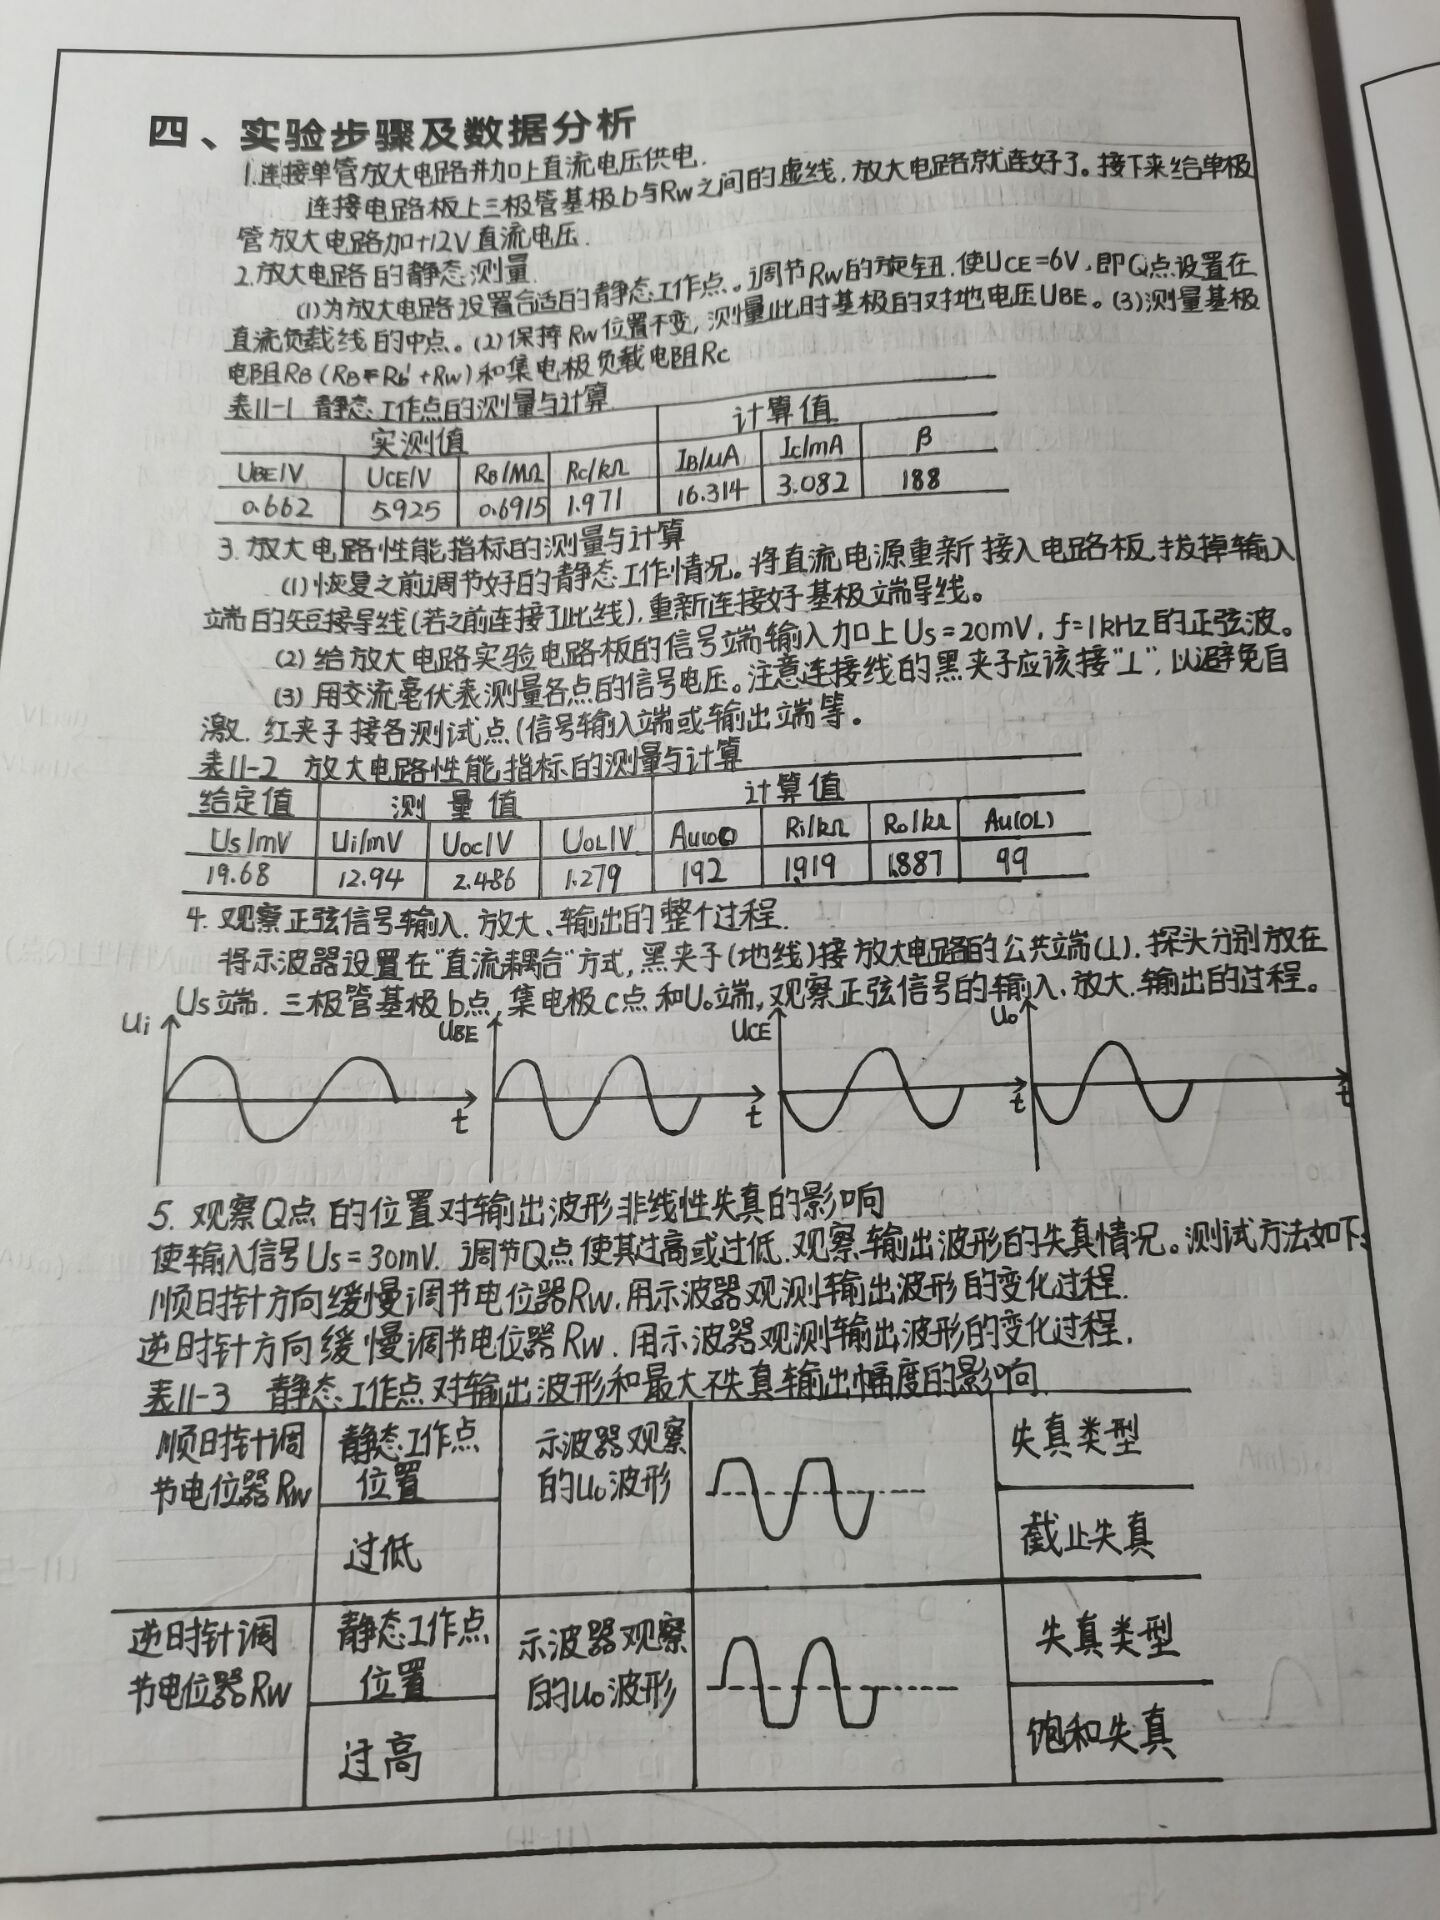 四、实验步骤及数据分析
1.连接单管放大电路并加上直流电压供电.
连接电路板上三极管基极b与Rw之间的虚线,放大电路就连好了。接下来给单极
管放大电路加+12V直流电压.
2.放大电路的静态测量.
(1)为放大电路设置合适的静态工作点。调节Rw的旋钮.使UCE=6V,即Q点设置在
直流负载线的中点。(2)保持Rw位置不变,测量此时基极的对地电压UBE。(3)测量基极
电阻RB(RB=Rb'+Rw)和集电极负载电阻Rc
表11-1 静态工作点的测量与计算
实测值 计算值
UBE/V UCE/V RB/MΩ Rc/kΩ IB/μA Ic/mA β
0.662 5.925 0.6915 1.971 16.314 3.082 188
3.放大电路性能指标的测量与计算
(1)恢复之前调节好的静态工作情况。将直流电源重新接入电路板.拔掉输入
端的短接导线(若之前连接了此线),重新连接好基极端导线。
(2)给放大电路实验电路板的信号端输入加上Us=20mV,f=1kHz的正弦波。
(3)用交流毫伏表测量各点的信号电压。注意连接线的黑夹子应该接"⊥",以避免自
激.红夹子接各测试点(信号输入端或输出端等。
表11-2 放大电路性能指标的测量与计算
给定值 测量值 计算值
Us/mV Ui/mV Uoc/V UoL/V Au(oc) Ri/kΩ Ro/kΩ Au(OL)
19.68 12.94 2.486 1.279 192 1.919 1.887 99
4.观察正弦信号输入.放大、输出的整个过程.
将示波器设置在"直流耦合"方式,黑夹子(地线)接放大电路的公共端(⊥).探头分别放在
Us端.三极管基极b点,集电极c点和Uo端,观察正弦信号的输入、放大.输出的过程。
Ui UBE UCE Uo
t t t t
5.观察Q点的位置对输出波形非线性失真的影响
使输入信号Us=30mV.调节Q点使其过高或过低.观察输出波形的失真情况。测试方法如下:
顺时针方向缓慢调节电位器Rw.用示波器观测输出波形的变化过程.
逆时针方向缓慢调节电位器Rw.用示波器观测输出波形的变化过程.
表11-3 静态工作点对输出波形和最大不失真输出幅度的影响
顺时针调 静态工作点 示波器观察 失真类型
节电位器Rw 位置 的uo波形
过低 截止失真
逆时针调 静态工作点 示波器观察 失真类型
节电位器Rw 位置 的uo波形
过高 饱和失真